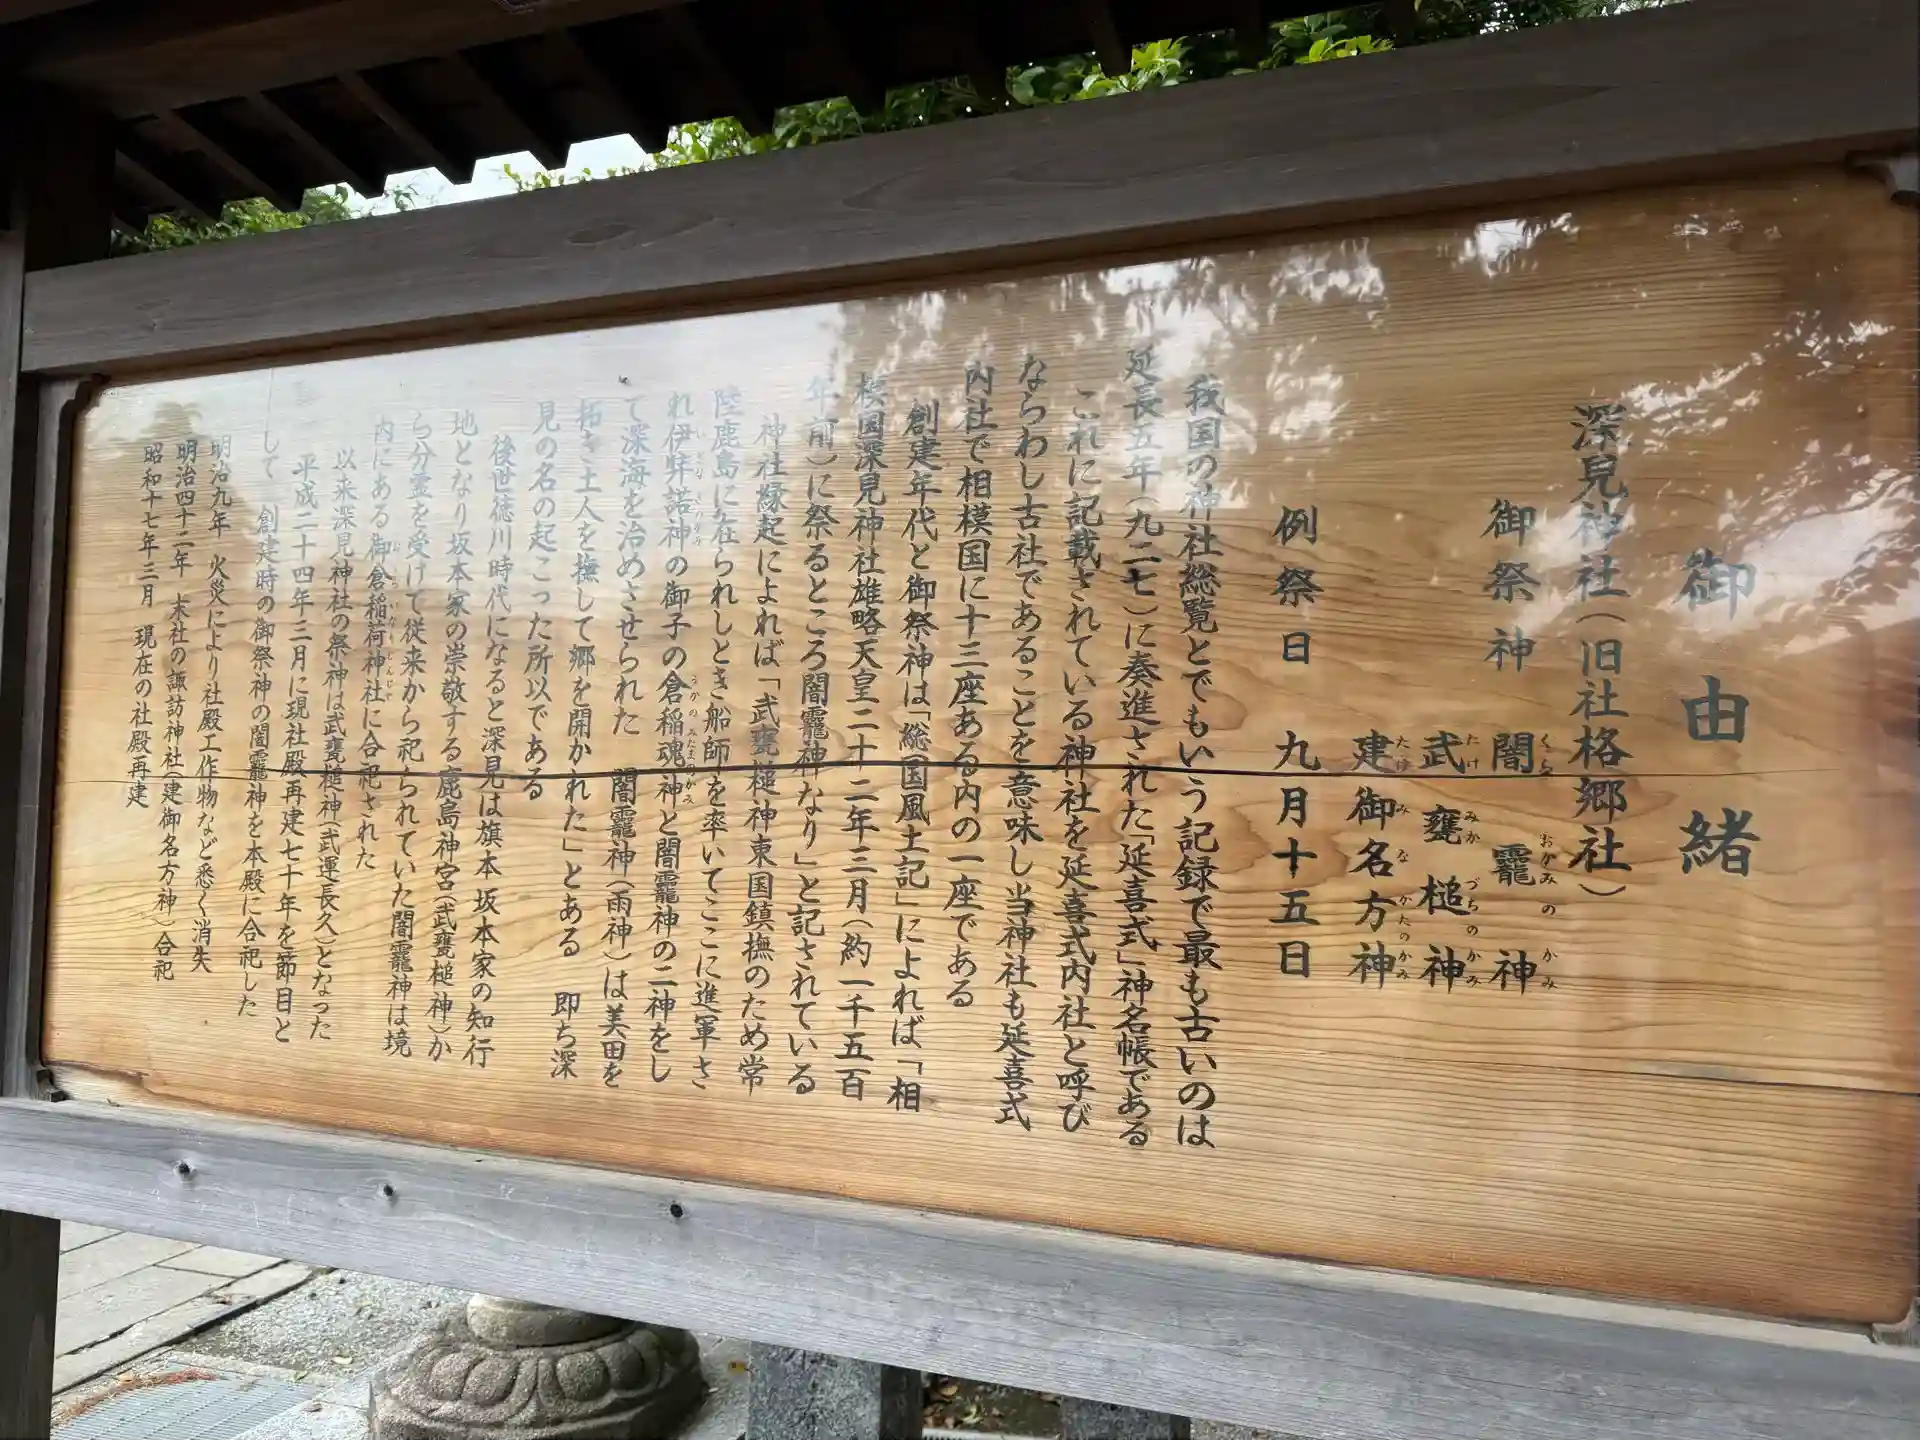 御由緒
深見神社（旧社格郷社）
御祭神　闇龗神
くら　おかみの　かみ
武甕槌神
たけ　みか　づちの　かみ
建御名方神
たけ　み　な　かたのかみ
例祭日　九月十五日
我国の神社総覧とでもいう記録で最も古いのは
延長五年（九二七）に奏進された「延喜式」神名帳である
これに記載されている神社を延喜式内社と呼び
ならわし古社であることを意味し当神社も延喜式
内社で相模国に十三座ある内の一座である
創建年代と御祭神は「総国風土記」によれば「相
模国深見神社雄略天皇二十二年三月（約一千五百
年前）に祭るところ闇龗神なり」と記されている
神社縁起によれば「武甕槌神東国鎮撫のため常
陸鹿島に在られしとき船師を率いてここに進軍さ
れ伊弉諾神の御子の倉稲魂神と闇龗神の二神をし
いざなぎのかみ　うかのみたまのかみ
て深海を治めさせられた　闇龗神（雨神）は美田を
拓き土人を撫して郷を開かれた」とある　即ち深
見の名の起こった所以である
後世徳川時代になると深見は旗本 坂本家の知行
地となり坂本家の崇敬する鹿島神宮（武甕槌神）か
ら分霊を受けて従来から祀られていた闇龗神は境
内にある御倉稲荷神社に合祀された
以来深見神社の祭神は武甕槌神（武運長久）となった
平成二十四年三月に現社殿再建七十年を節目と
して　創建時の御祭神の闇龗神を本殿に合祀した
明治九年　火災により社殿工作物など悉く消失
明治四十二年　末社の諏訪神社（建御名方神）合祀
昭和十七年三月　現在の社殿再建